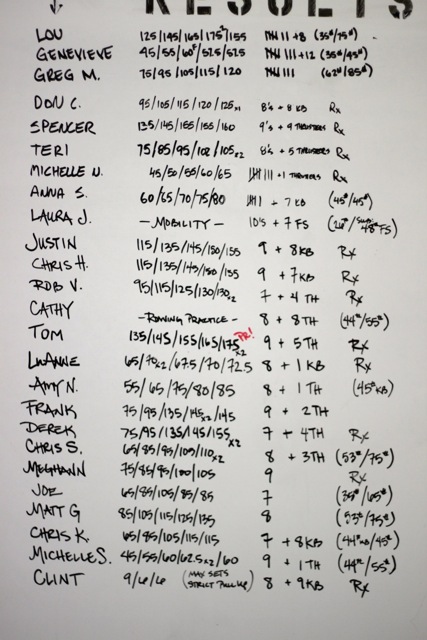 RESULTS
LOU 125/145/165/175/155 +8 (35#/75#)
GENEVIEVE 45/55/60F/52.5/52.5 +12 (35#/45#)
GREG M. 75/95/105/115/120 (62#/85#)
DON C. 95/105/115/120/125x1 8's + 8 KB Rx
SPENCER 135/145/155/155/160 9's + 9 THRUSTERS Rx
TERI 75/85/95/102/105x2 8's + 5 THRUSTERS Rx
MICHELLE U. 45/50/55/60/65 +1 THRUSTERS Rx
ANNA S. 60/65/70/75/80 + 7 KB (45#/45#)
LAURA J. - MOBILITY - 10's + 7 FS (26#/48# FS)
JUSTIN 115/135/145/150/155 9 + 8KB Rx
CHRIS H. 115/135/145/150/155 9 + 7KB Rx
ROB V. 95/115/125/130/130x2 7 + 4 TH Rx
CATHY - ROWING PRACTICE - 8 + 8TH (44#/55#)
TOM 135/145/155/165/175x2 PR! 9 + 5TH Rx
LUANNE 65/70x2/67.5/70/72.5 8 + 1 KB Rx
AMY N. 55/65/75/80/85 8 + 1TH (45#KB)
FRANK 75/95/135/145x2/145 9 + 2TH
DEREK 75/95/135/145/155x2 7 + 4TH Rx
CHRIS S. 65/85/95/105/110x2 8 + 3TH (53#/75#)
MEGHANN 75/85/95/100/105 9 Rx
JOE 65/85/105/85/85 7 (35#/65#)
MATT G 85/105/115/125/135 8 (53#/75#)
CHRIS K. 65/85/105/115/115 7 + 8KB (44#KB/45#)
MICHELLE S. 45/55/60/62.5x2/60 9 + 1TH (44#/55#)
CLINT 9/6/6 (MAX SETS STRICT PULL UP) 8 + 9KB Rx